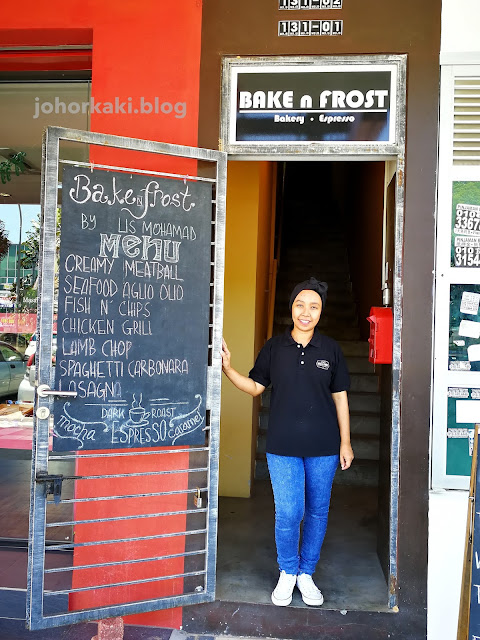 131-02
131-01
johorkaki.blog
BAKE n FROST
Bakery • Espresso
Bake n frost
BY LIS MOHAMAD
MENU
CREAMY MEATBALL
SEAFOOD AGLIO OLIO
FISH N' CHIPS
CHICKEN GRILL
LAMB CHOP
SPAGHETTI CARBONARA
LASAGNA
DARK ROAST
mocha ESPRESSO caramel